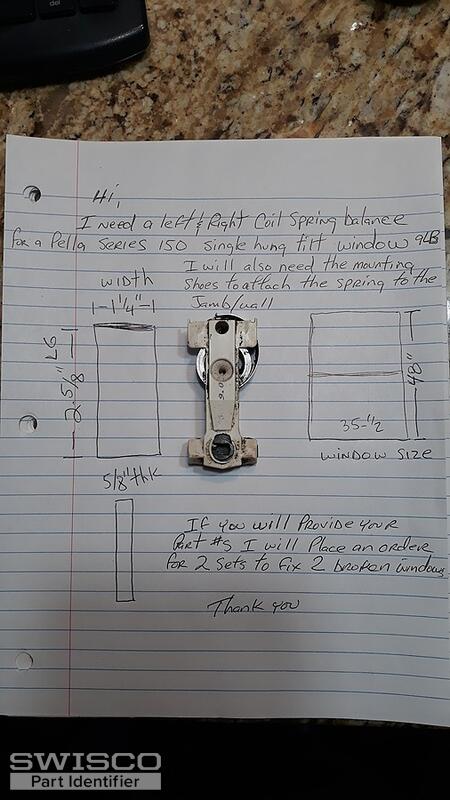 del
Hi,
I need a left & Right Coil Spring balance
for a Pella Series 150 single hung tilt window 9LB
I will also need the mounting
shoes to attach the spring to the
Jamb/wall
WIDTH
1-1/4"
2 5/8" LG
9.0
48"
35-1/2
WINDOW SIZE
5/8" thk
If you will Provide your
Part #s I will Place an order
for 2 sets to fix 2 broken windows
Thank you
SWISCO
Part Identifier